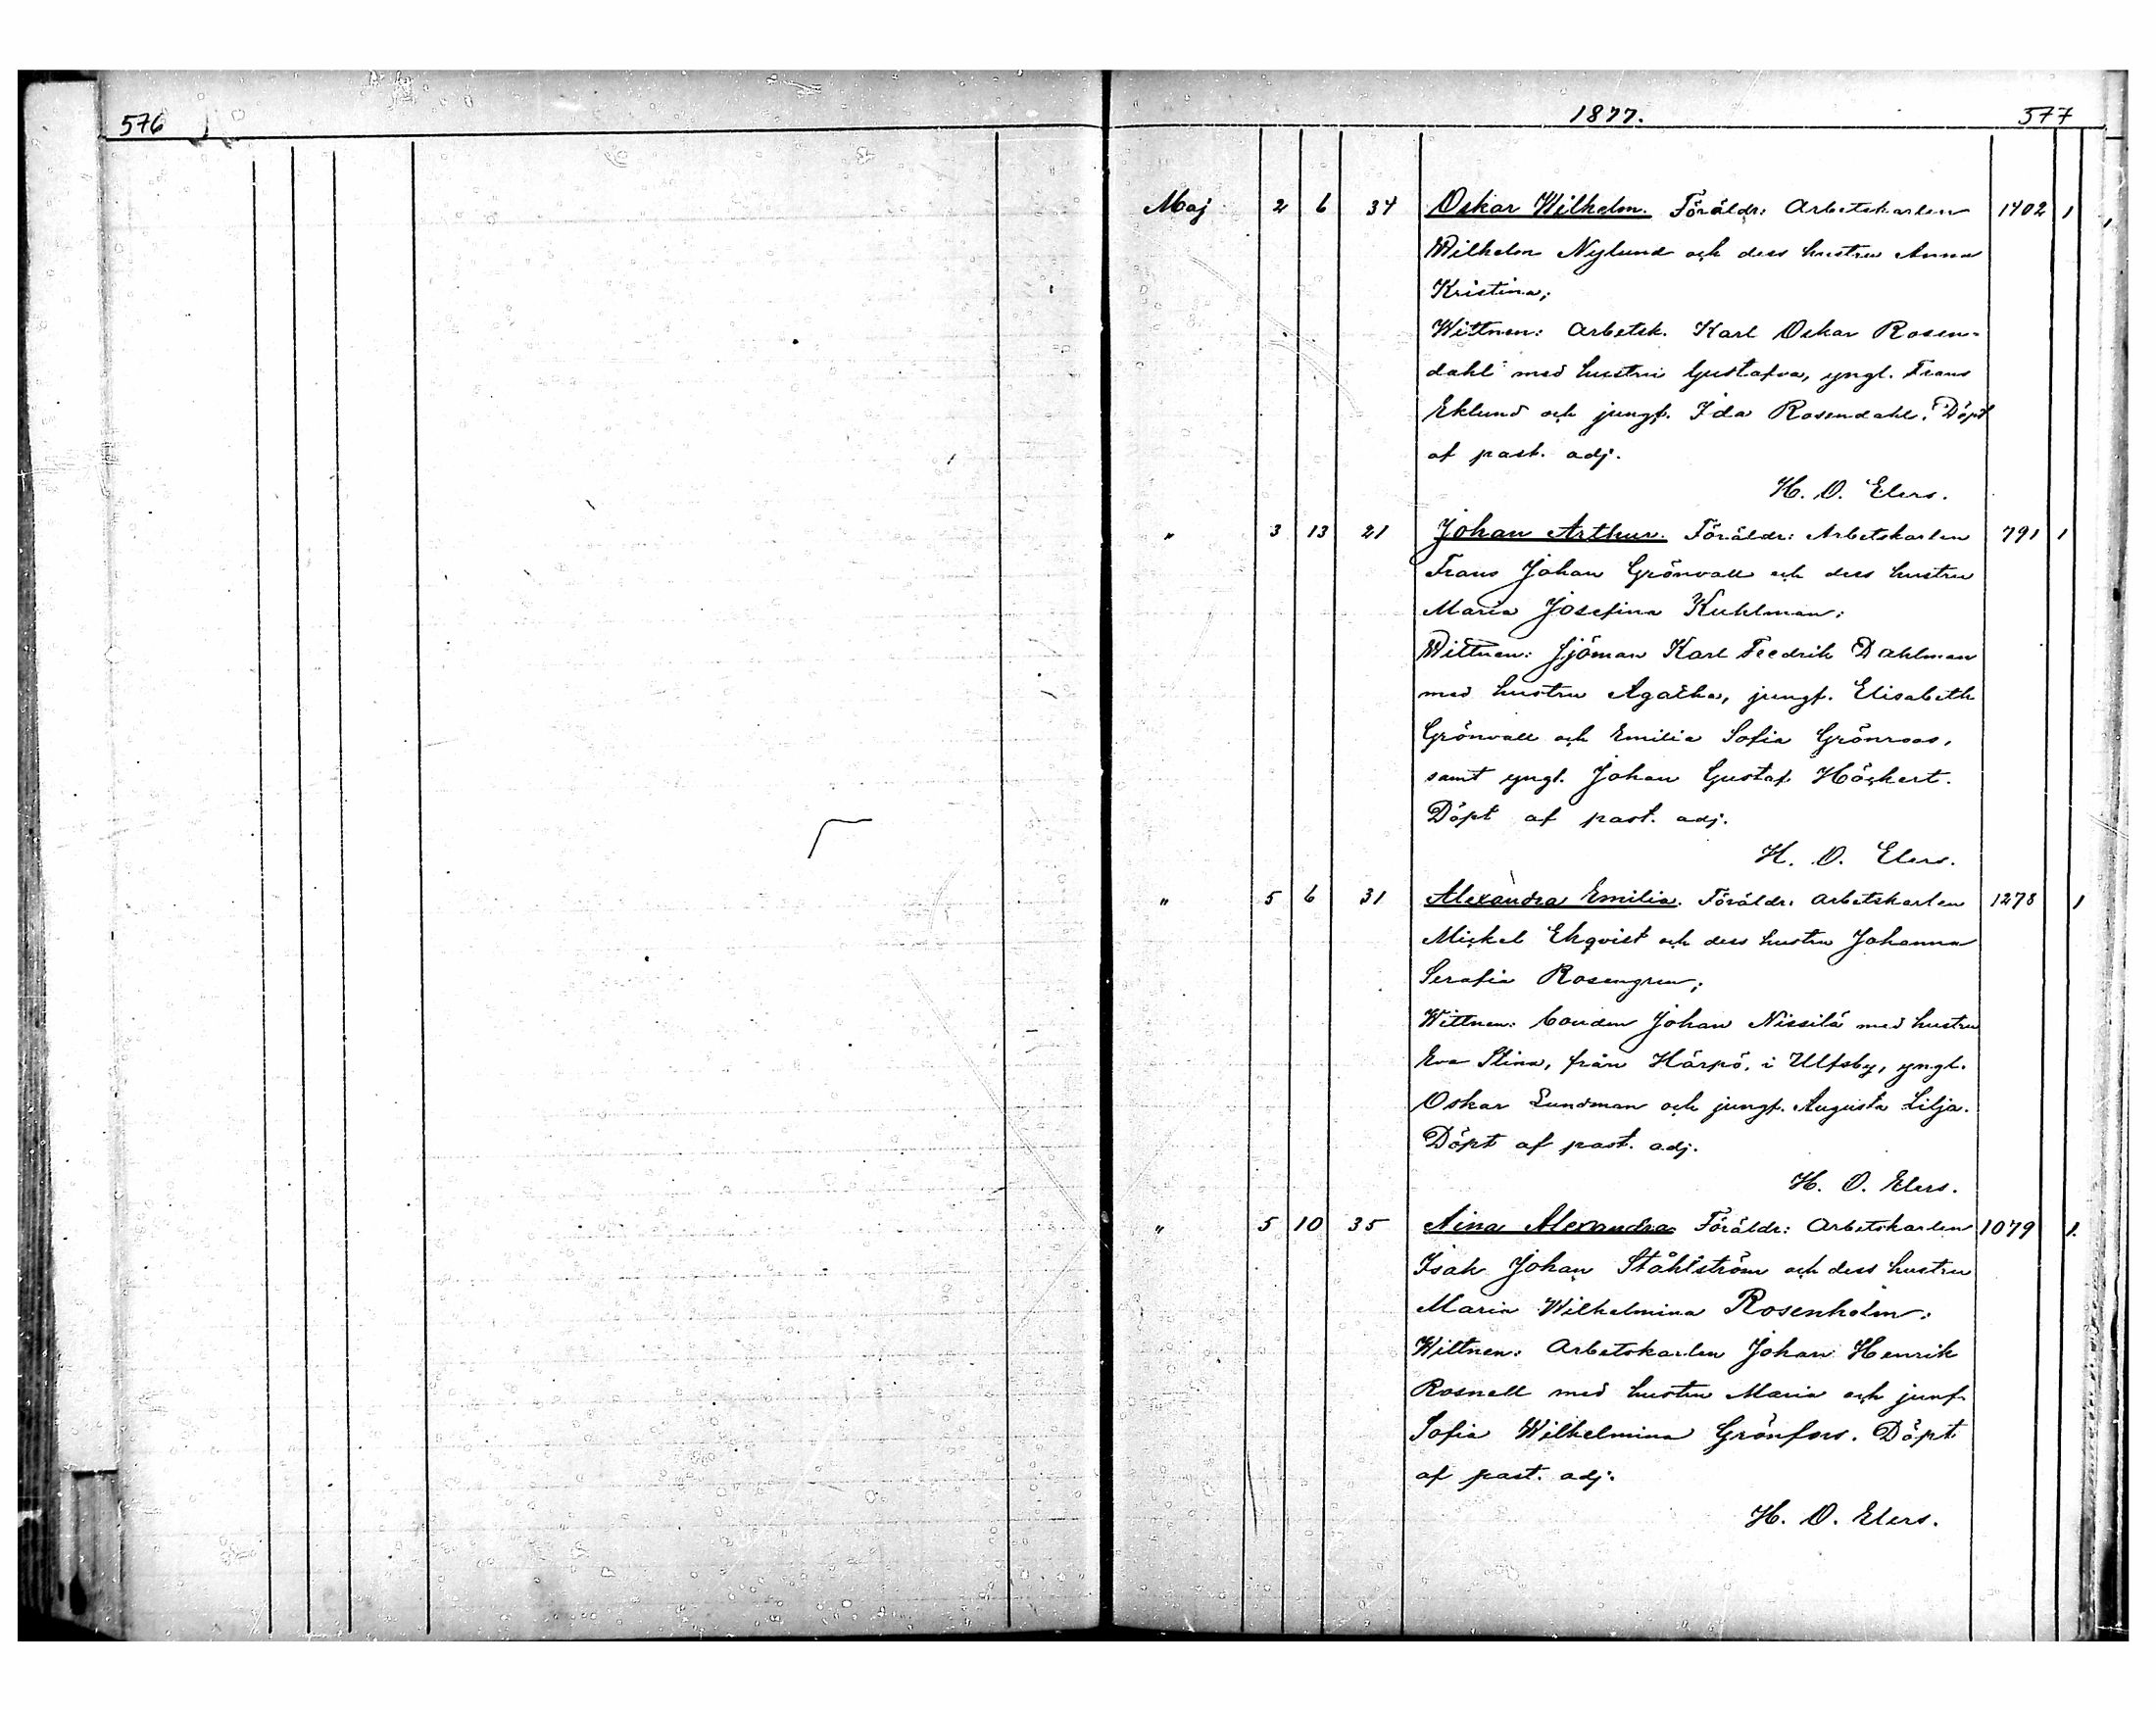 576
1877. 577
Maj 2 6 34 Oskar Wilhelm. Föräldr: Arbetskarlen 1402 1
Wilhelm Nylund och dess hustru Anna
Kristina;
Wittnen: Arbetsk. Karl Oskar Rosen-
dahl med hustru Gustafva, yngl. Frans
Eklund och jungf. Ida Rosendahl. Döpt
af past. adj.
H. O. Elers.
" 3 13 21 Johan Arthur. Föräldr: Arbetskarlen 791 1
Frans Johan Grönvall och dess hustru
Maria Josefina Kuhlman;
Wittnen: Sjöman Karl Fredrik Dahlman
med hustru Agatha, jungf. Elisabeth
Grönvall och Emilia Sofia Grönroos,
samt yngl. Johan Gustaf Höckert.
Döpt af past. adj.
H. O. Elers.
" 5 6 31 Alexandra Emilia. Föräldr: Arbetskarlen 1278 1
Mickel Ekqvist och dess hustru Johanna
Serafia Rosengren;
Wittnen: bonden Johan Nissilä med hustru
Eva Stina, från Härpö, i Ulfsby, yngl.
Oskar Lundman och jungf. Augusta Lilja.
Döpt af past. adj.
H. O. Elers.
" 5 10 35 Aina Alexandra Föräldr: Arbetskarlen 1079 1.
Isak Johan Ståhlström och dess hustru
Maria Wilhelmina Rosenholm;
Wittnen: Arbetskarlen Johan Henrik
Rosnell med hustru Maria och junf.
Sofia Wilhelmina Grönfors. Döpt
af past. adj.
H. O. Elers.